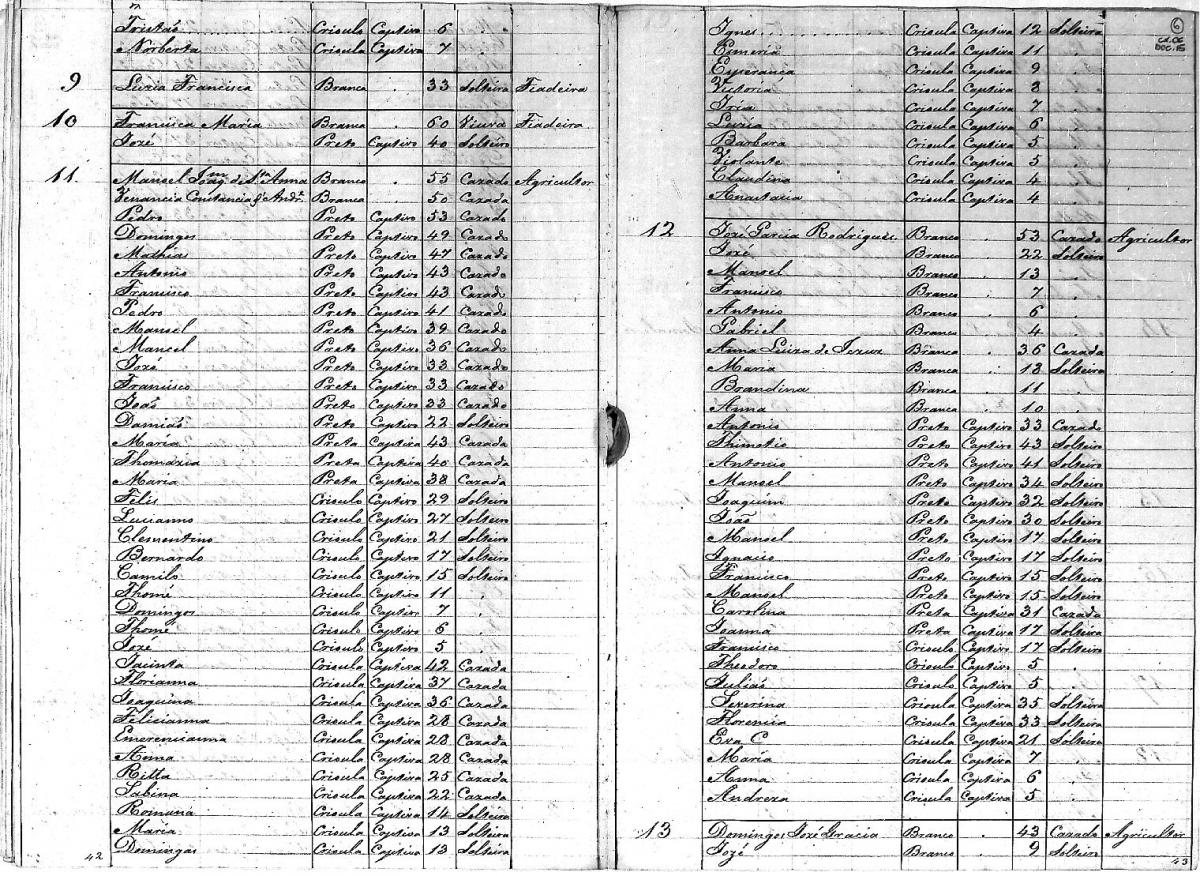 Tristaõ Crioulo Captivo 6
Norberta Crioula Captiva 7
9 Luzia Francisca Branca 33 Solteira Fiadeira
10 Francisca Maria Branca 60 Viuva Fiadeira
Jozé Preto Captivo 40 Solteiro
11 Manoel Joaq.m de S.ta Anna Branco 55 Cazado Agricultor
Venancia Constancia Branca 50 Cazada
Pedro Preto Captivo 53 Cazado
Domingos Preto Captivo 49 Cazado
Mathias Preto Captivo 47 Cazado
Antonio Preto Captivo 43 Cazado
Francisco Preto Captivo 43 Cazado
Pedro Preto Captivo 41 Cazado
Manoel Preto Captivo 39 Cazado
Manoel Preto Captivo 36 Cazado
Jozé Preto Captivo 33 Cazado
Francisco Preto Captivo 33 Cazado
Joaõ Preto Captivo 33 Cazado
Damiaõ Preto Captivo 22 Solteiro
Maria Preta Captiva 43 Cazada
Thomazia Preta Captiva 40 Cazada
Maria Preta Captiva 38 Cazada
Felis Crioulo Captivo 29 Solteiro
Lucianno Crioulo Captivo 27 Solteiro
Clementino Crioulo Captivo 21 Solteiro
Bernardo Crioulo Captivo 17 Solteiro
Camilo Crioulo Captivo 15 Solteiro
Thomé Crioulo Captivo 11
Domingos Crioulo Captivo 7
Thomé Crioulo Captivo 6
Jozé Crioulo Captivo 5
Jacinta Crioula Captiva 42 Cazada
Florianna Crioula Captiva 37 Cazada
Joaquina Crioula Captiva 36 Cazada
Felicianna Crioula Captiva 28 Cazada
Emerencianna Crioula Captiva 28 Cazada
Anna Crioula Captiva 28 Cazada
Ritta Crioula Captiva 25 Cazada
Sabina Crioula Captiva 22 Cazada
Romana Crioula Captiva 14 Solteira
Maria Crioula Captiva 13 Solteira
Domingas Crioula Captiva 13 Solteira
42
6
CX.06
DOC.15
Ignes Crioula Captiva 12 Solteira
Esmeria Crioula Captiva 11
Esperança Crioula Captiva 9
Victoria Crioula Captiva 8
Iria Crioula Captiva 7
Luzia Crioula Captiva 6
Barbara Crioula Captiva 5
Violante Crioula Captiva 5
Claudina Crioula Captiva 4
Anastacia Crioula Captiva 4
12 Jozé Garcia Rodrigues Branco 53 Cazado Agricultor
Jozé Branco 22 Solteiro
Manoel Branco 13
Francisco Branco 7
Antonio Branco 6
Gabriel Branco 4
Anna Luiza de Jezus Branca 36 Cazada
Maria Branca 13 Solteira
Brandina Branca 11
Anna Branca 10
Antonio Preto Captivo 33 Cazado
Thimotio Preto Captivo 43 Solteiro
Antonio Preto Captivo 41 Solteiro
Manoel Preto Captivo 34 Solteiro
Joaquim Preto Captivo 32 Solteiro
Joaõ Preto Captivo 30 Solteiro
Manoel Preto Captivo 17 Solteiro
Ignacio Preto Captivo 17 Solteiro
Francisco Preto Captivo 15 Solteiro
Manoel Preto Captivo 15 Solteiro
Carolina Preta Captiva 31 Cazada
Joanna Preta Captiva 17 Solteira
Francisco Crioulo Captivo 17 Solteiro
Theodoro Crioulo Captivo 5
Juliaõ Crioulo Captivo 5
Severina Crioula Captiva 35 Solteira
Florencia Crioula Captiva 33 Solteira
Eva C Crioula Captiva 21 Solteira
Maria Crioula Captiva 7
Anna Crioula Captiva 6
Andreza Crioula Captiva 5
13 Domingos Jozé Gracia Branco 43 Cazado Agricultor
Jozé Branco 9 Solteiro
43